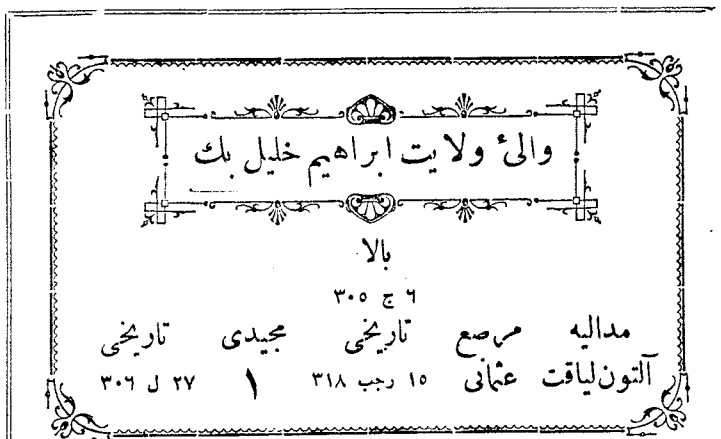 والیٔ ولایت ابراهیم خلیل بك
بالا
٦ ج ٣٠٥
مدالیه مرصع تاریخی مجیدی تاریخی
آلتون لیاقت عثمانی ١٥ رجب ٣١٨ ١ ٢٧ ل ٣٠٦